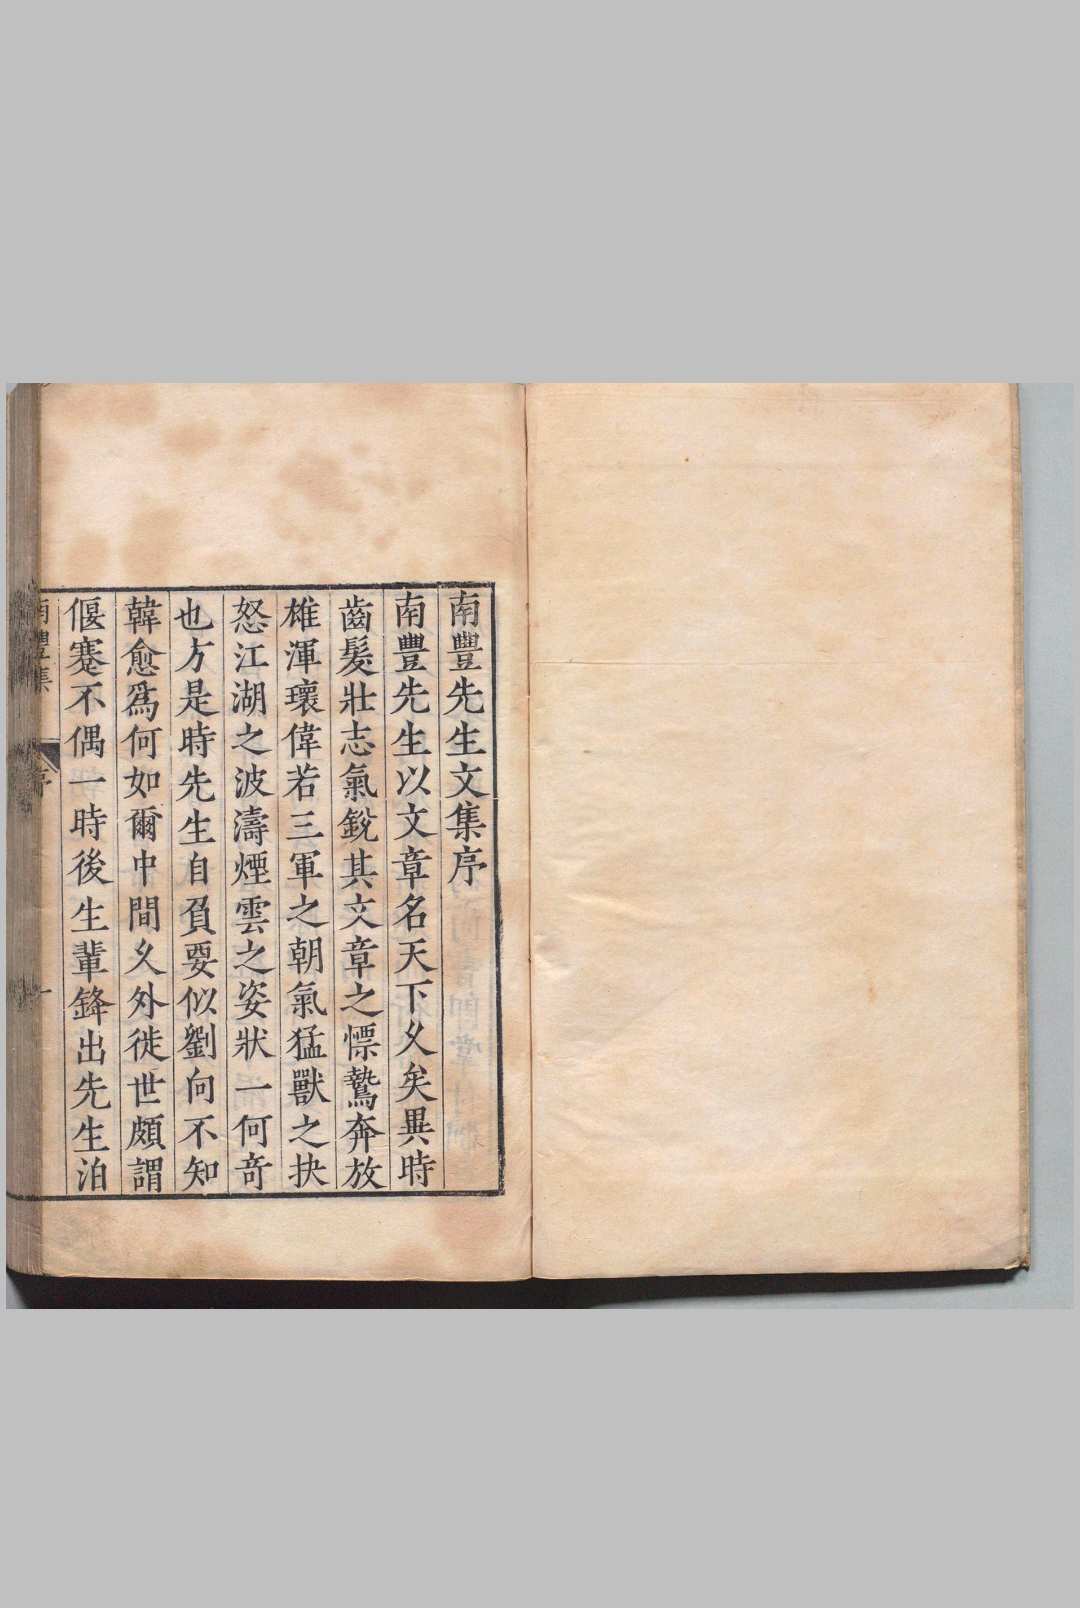 南豐先生文集序
南豐先生以文章名天下乆矣異時
齒髮壯志氣銳其文章之慓鷙奔放
雄渾瓌偉若三軍之朝氣猛獸之抉
怒江湖之波濤煙雲之姿狀一何奇
也方是時先生自負要似劉向不知
韓愈爲何如爾中間乆外徙世頗謂
偃蹇不偶一時後生輩鋒出先生泊
南豐集
序
一